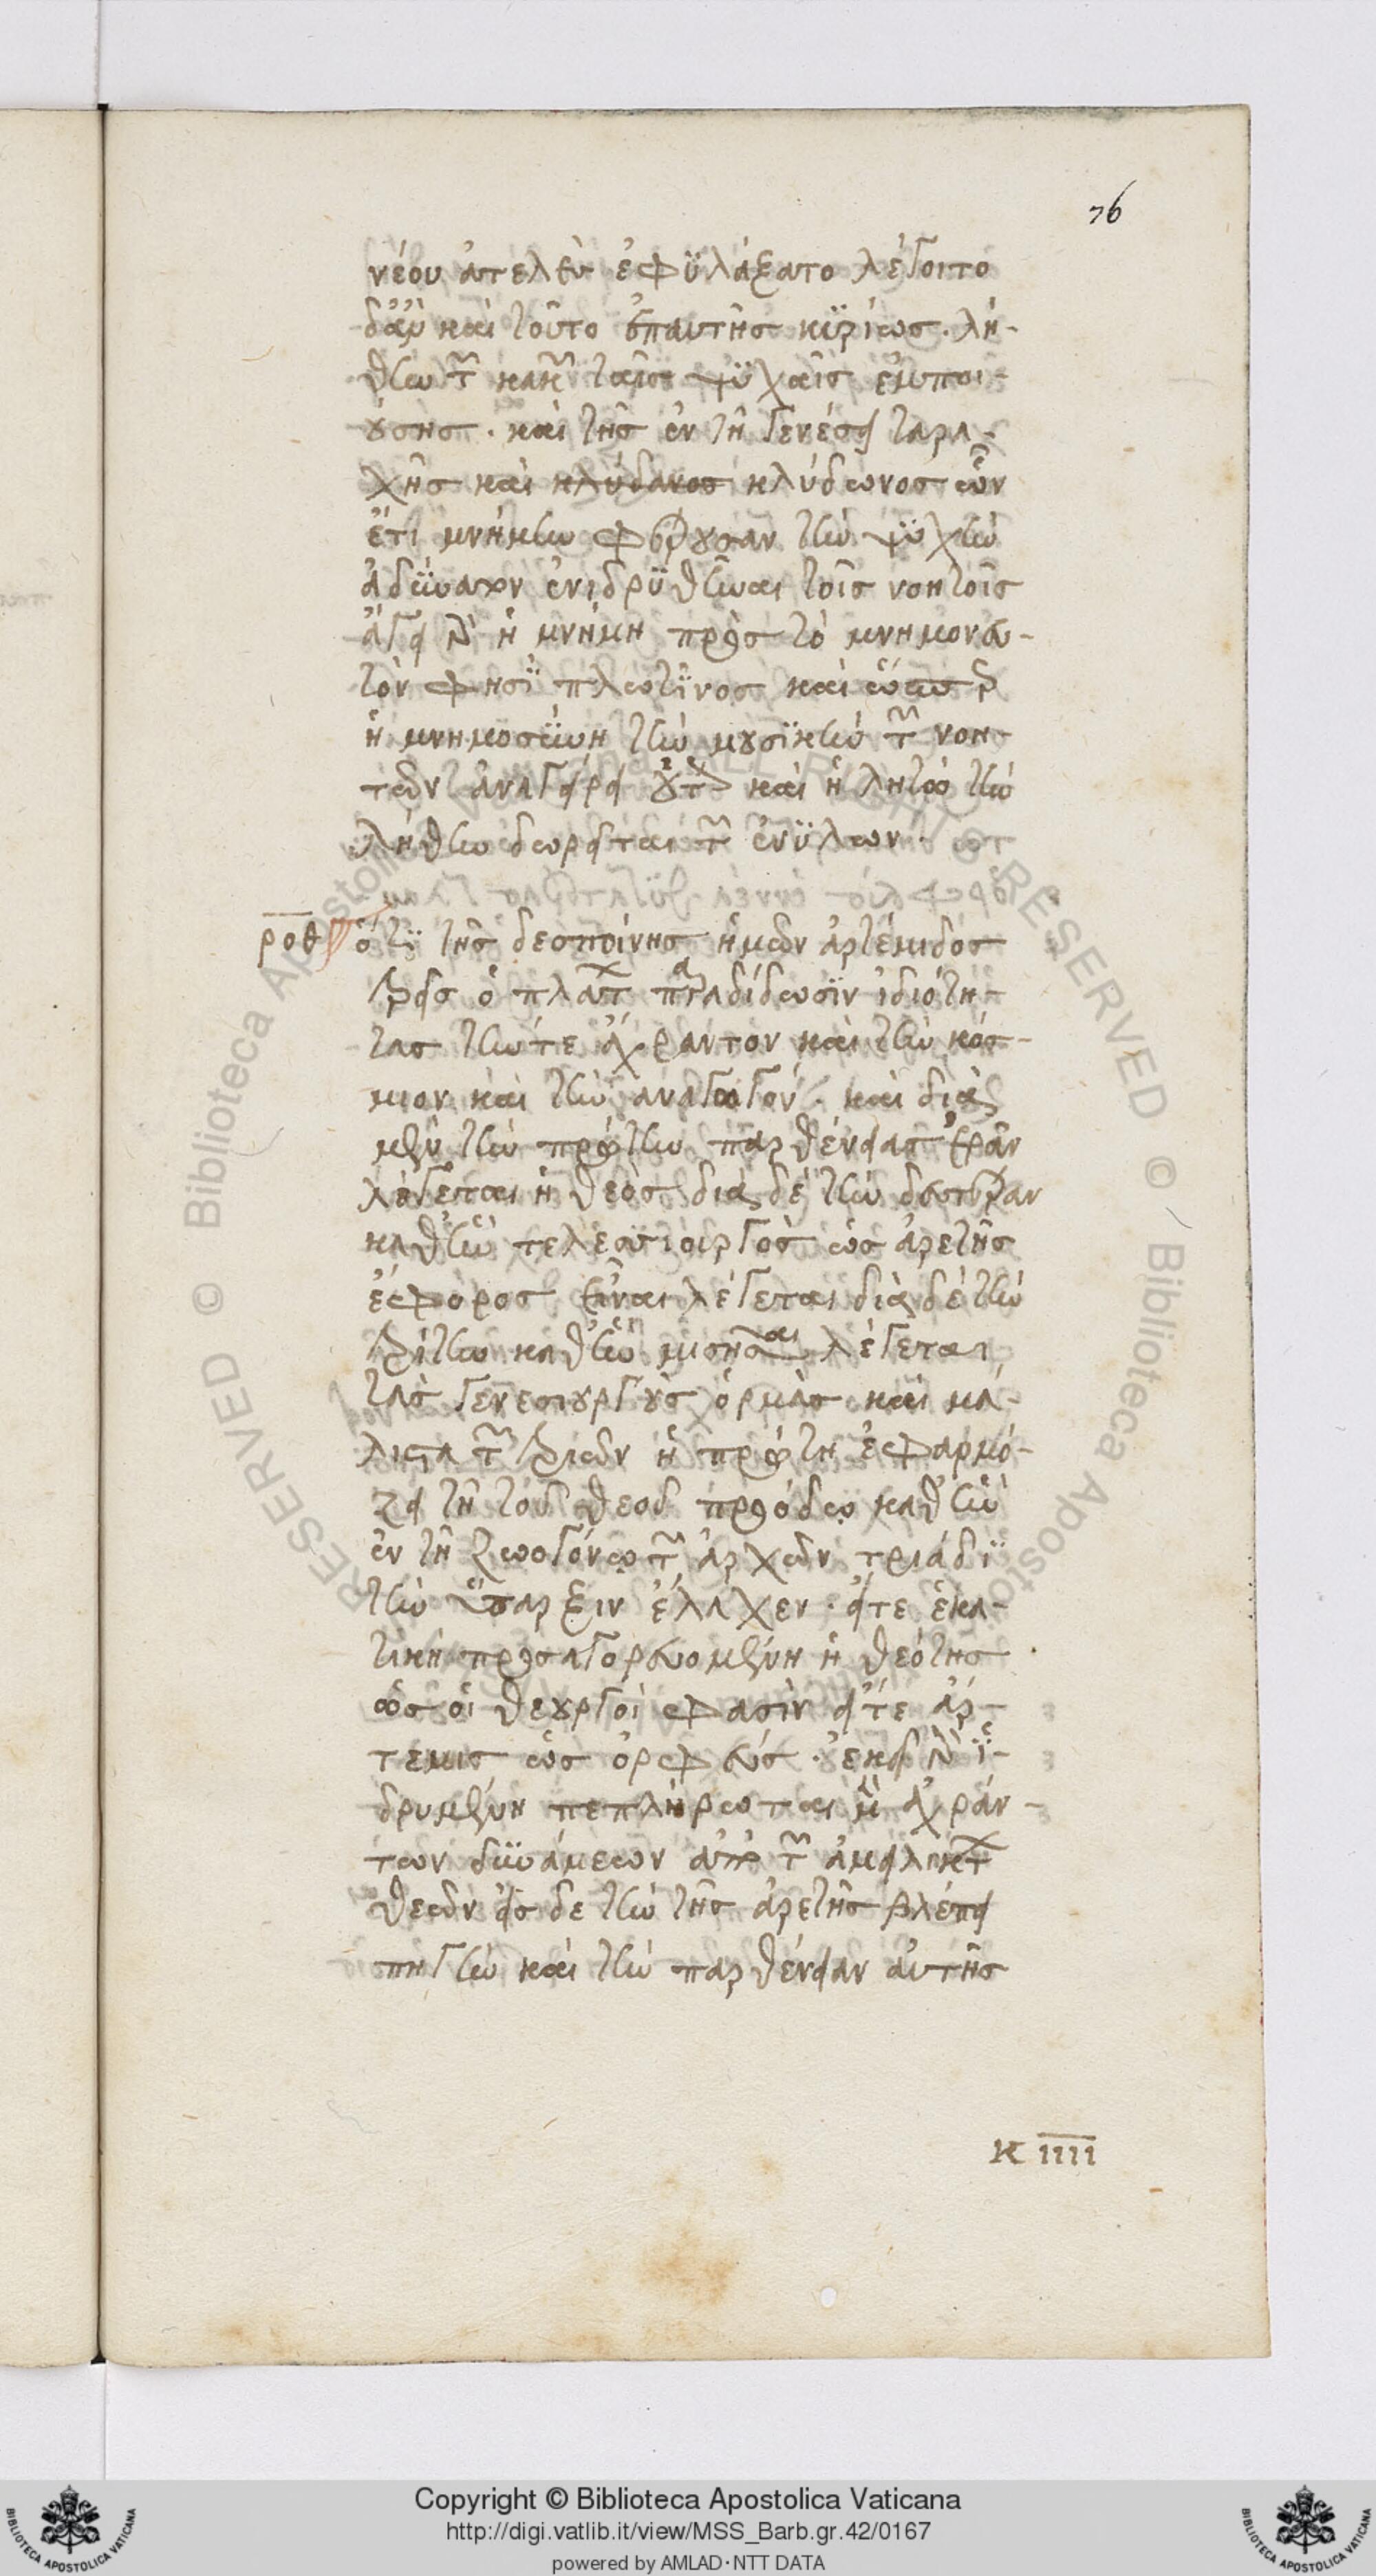 76
νέου ἀτελὲς ἐφϋλάξατο λέγοιτο
δ' ἂν καὶ τοῦτο ὑπ' αὐτῆς κϋρίως. λή-
θην τῶν κακῶν ταῖς ψϋχαῖς ἐμποι-
ούσης. καὶ τῆς ἐν τῇ γενέσει ταρα-
χῆς καὶ κλύδωνος ὧν
ἔτι μνήμην φέρουσαν τὴν ψϋχὴν
ἀδύνατον ἐνιδρϋθῆναι τοῖς νοητοῖς
ἄγει γὰρ ἡ μνήμη πρὸς τὸ μνημονευ-
τὸν φησὶ πλωτῖνος καὶ ὥσπερ
ἡ μνημοσύνη τὴν μουσικὴν τῶν νοη-
τῶν ἀναγείρει οὕτω καὶ ἡ λητὼ τὴν
λήθην δωρεῖται τῶν ἐνύλων.
ροθ ὅτι τῆς δεσποίνης ἡμῶν ἀρτέμιδος
τρεῖς ὁ πλάτων παραδίδωσιν ἰδιότη-
τας τήν τε ἄχραντον καὶ τὴν κόσ-
μιον καὶ τὴν ἀναγωγόν. καὶ διὰ
μὲν τὴν πρώτην παρθένειας ἐρᾶν
λέγεται ἡ θεὸς διὰ δὲ τὴν δευτέραν
καθ' ἣν τελεσιουργὸς ὡς ἀρετῆς
ἔφορος εἶναι λέγεται διὰ δὲ τὴν
τρίτην καθ' ἣν μισῆσαι λέγεται
τὰς γενεσιουργοὺς ὁρμὰς καὶ μά-
λιστα τῶν τριῶν ἡ πρώτη ἐφαρμό-
ζει τῇ τοῦ θεοῦ προόδῳ καθ' ἣν
ἐν τῇ ζωογόνῳ τῶν ἀρχῶν τριάδι
τὴν ὕπαρξιν ἔλαχεν. εἴτε ἑκα-
τικὴ προσαγορευομένη ἡ θεότης
ὡς οἱ θεουργοί φασὶν εἴτε ἄρ-
τεμις ὡς ὀρφεύς. ἐκεῖ γὰρ ἱ-
δρυμένη πεπλήρωται μὲν ἀχράν-
των δυνάμεων ἀπὸ τῶν ἀμειλίκτων
θεῶν εἰς δὲ τὴν τῆς ἀρετῆς βλέπει
πηγὴν καὶ τὴν παρθένειαν αὐτῆς
K IIII
Copyright © Biblioteca Apostolica Vaticana
http://digi.vatlib.it/view/MSS_Barb.gr.42/0167
powered by AMLAD·NTT DATA